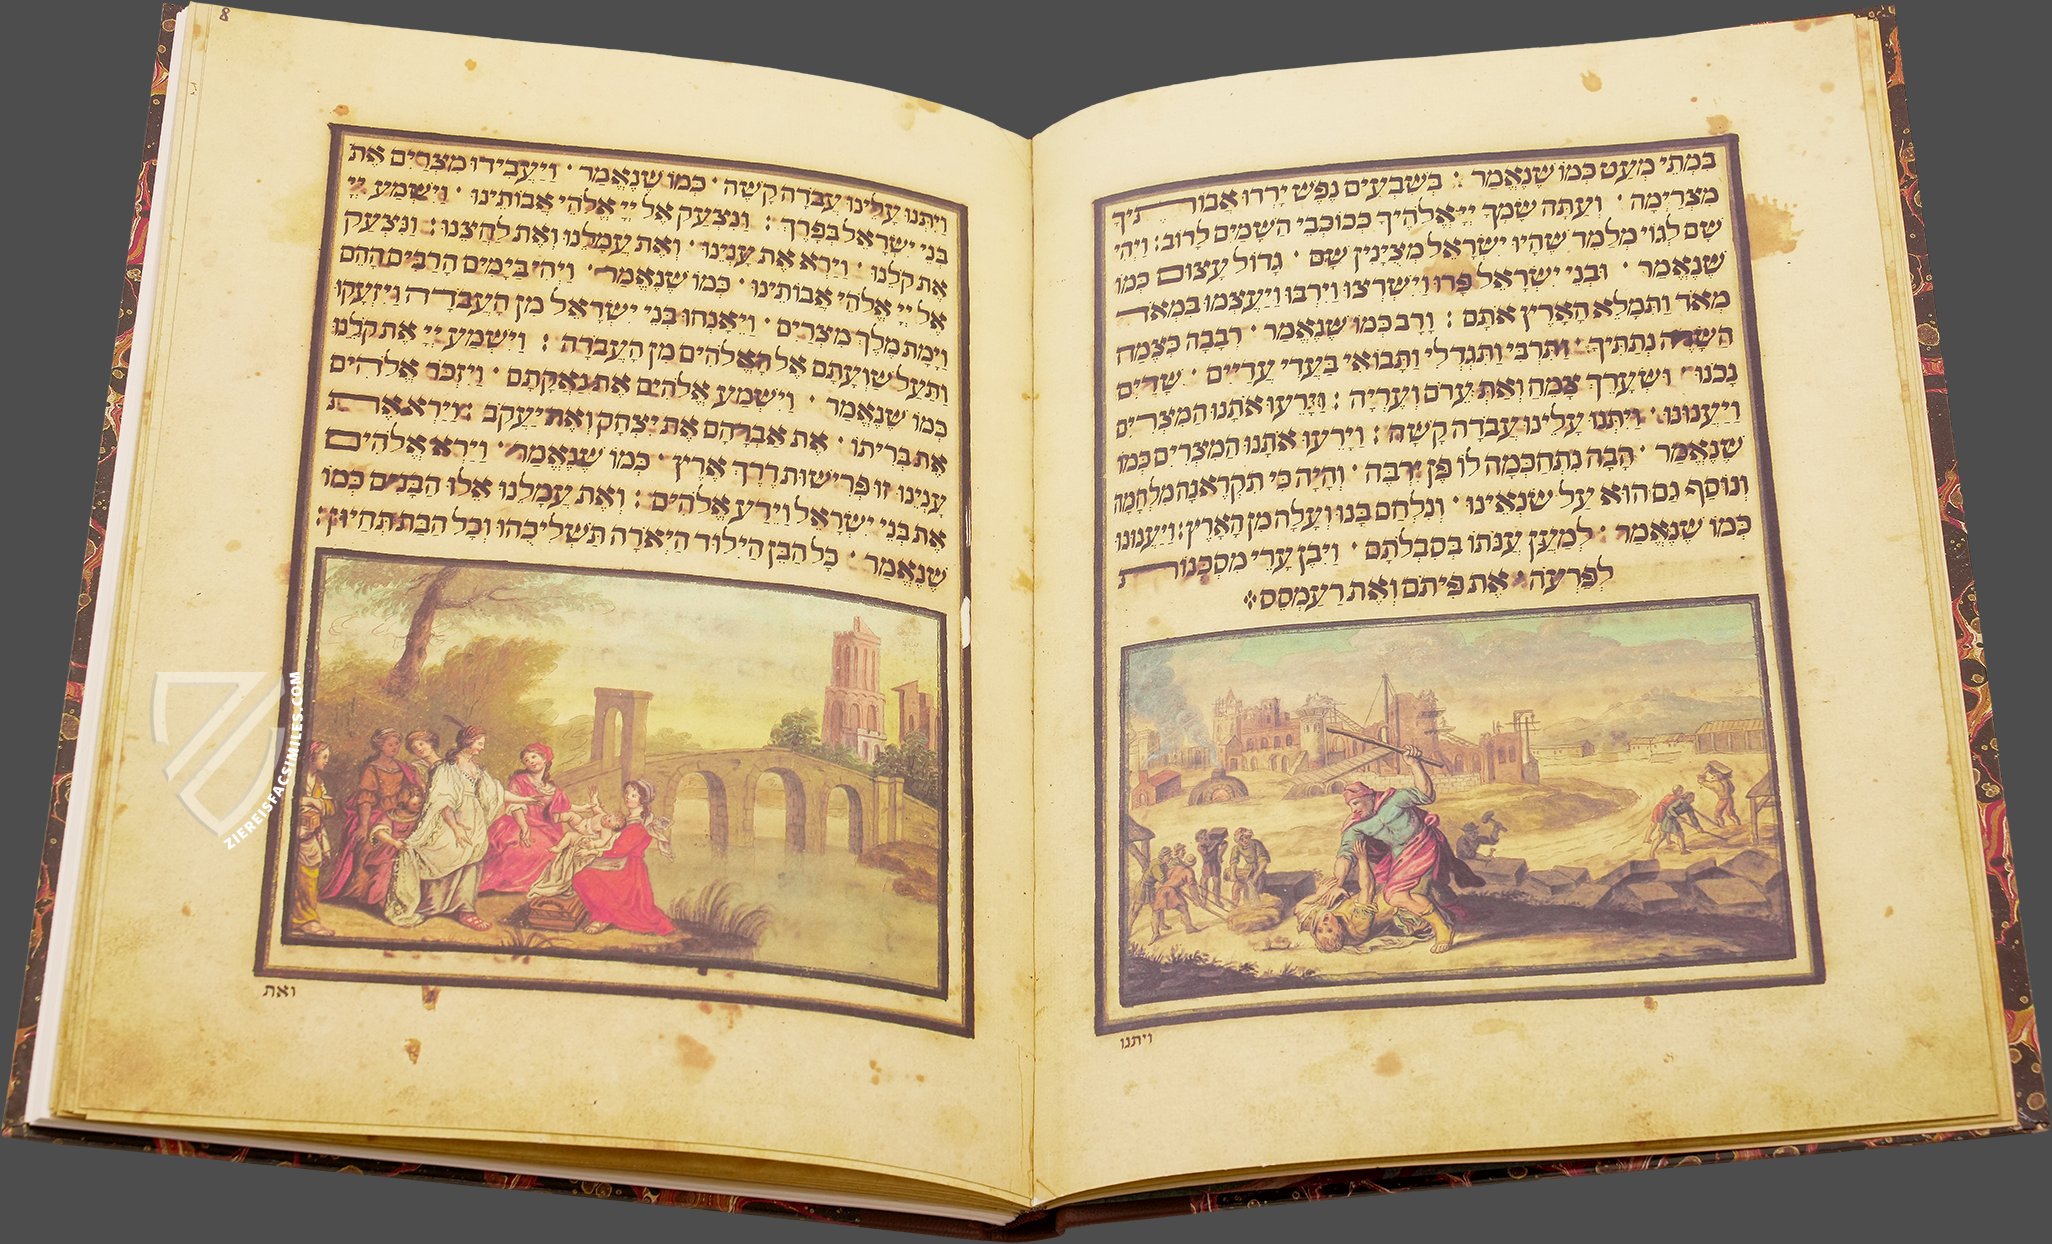 בִּמְתֵי מְעַט כְּמוֹ שֶׁנֶּאֱמַר : בְּשִׁבְעִים נֶפֶשׁ יָרְדוּ אֲבוֹתֶיךָ
מִצְרָיְמָה · וְעַתָּה שָׂמְךָ יְיָ אֱלֹהֶיךָ כְּכוֹכְבֵי הַשָּׁמַיִם לָרוֹב : וַיְהִי
שָׁם לְגוֹי מְלַמֵּד שֶׁהָיוּ יִשְׂרָאֵל מְצֻיָּנִין שָׁם · גָּדוֹל עָצוּם כְּמוֹ
שֶׁנֶּאֱמַר · וּבְנֵי יִשְׂרָאֵל פָּרוּ וַיִּשְׁרְצוּ וַיִּרְבּוּ וַיַּעַצְמוּ בִּמְאֹד
מְאֹד וַתִּמָּלֵא הָאָרֶץ אֹתָם : וָרָב כְּמוֹ שֶׁנֶּאֱמַר · רְבָבָה כְּצֶמַח
הַשָּׂדֶה נְתַתִּיךְ · וַתִּרְבִּי וַתִּגְדְּלִי וַתָּבוֹאִי בַּעֲדִי עֲדָיִים · שָׁדַיִם
נָכֹנוּ וּשְׂעָרֵךְ צִמֵּחַ וְאַתְּ עֵרֹם וְעֶרְיָה : וַיָּרֵעוּ אֹתָנוּ הַמִּצְרִים
וַיְעַנּוּנוּ · וַיִּתְּנוּ עָלֵינוּ עֲבֹדָה קָשָׁה : וַיָּרֵעוּ אֹתָנוּ הַמִּצְרִים כְּמוֹ
שֶׁנֶּאֱמַר · הָבָה נִתְחַכְּמָה לוֹ פֶּן יִרְבֶּה · וְהָיָה כִּי תִקְרֶאנָה מִלְחָמָה
וְנוֹסַף גַּם הוּא עַל שֹׂנְאֵינוּ · וְנִלְחַם בָּנוּ וְעָלָה מִן הָאָרֶץ : וַיְעַנּוּנוּ
כְּמוֹ שֶׁנֶּאֱמַר : לְמַעַן עַנֹּתוֹ בְּסִבְלֹתָם · וַיִּבֶן עָרֵי מִסְכְּנוֹת
לְפַרְעֹה · אֶת פִּיתֹם וְאֶת רַעַמְסֵס
ויתנו
8
וַיִּתְּנוּ עָלֵינוּ עֲבֹדָה קָשָׁה · כְּמוֹ שֶׁנֶּאֱמַר · וַיַּעֲבִידוּ מִצְרַיִם אֶת
בְּנֵי יִשְׂרָאֵל בְּפָרֶךְ : וַנִּצְעַק אֶל יְיָ אֱלֹהֵי אֲבוֹתֵינוּ · וַיִּשְׁמַע יְיָ
אֶת קֹלֵנוּ · וַיַּרְא אֶת עָנְיֵנוּ · וְאֶת עֲמָלֵנוּ וְאֶת לַחֲצֵנוּ : וַנִּצְעַק
אֶל יְיָ אֱלֹהֵי אֲבוֹתֵינוּ · כְּמוֹ שֶׁנֶּאֱמַר · וַיְהִי בַיָּמִים הָרַבִּים הָהֵם
וַיָּמָת מֶלֶךְ מִצְרַיִם · וַיֵּאָנְחוּ בְנֵי יִשְׂרָאֵל מִן הָעֲבֹדָה וַיִּזְעָקוּ
וַתַּעַל שַׁוְעָתָם אֶל הָאֱלֹהִים מִן הָעֲבֹדָה : וַיִּשְׁמַע יְיָ אֶת קֹלֵנוּ
כְּמוֹ שֶׁנֶּאֱמַר · וַיִּשְׁמַע אֱלֹהִים אֶת נַאֲקָתָם · וַיִּזְכֹּר אֱלֹהִים
אֶת בְּרִיתוֹ · אֶת אַבְרָהָם אֶת יִצְחָק וְאֶת יַעֲקֹב : וַיַּרְא אֶת
עָנְיֵנוּ זוֹ פְּרִישׁוּת דֶּרֶךְ אֶרֶץ · כְּמוֹ שֶׁנֶּאֱמַר · וַיַּרְא אֱלֹהִים
אֶת בְּנֵי יִשְׂרָאֵל וַיֵּדַע אֱלֹהִים : וְאֶת עֲמָלֵנוּ אֵלּוּ הַבָּנִים כְּמוֹ
שֶׁנֶּאֱמַר · כָּל הַבֵּן הַיִּלּוֹד הַיְאֹרָה תַּשְׁלִיכֻהוּ וְכָל הַבַּת תְּחַיּוּן :
ואת
ZIEREISFACSIMILES.COM